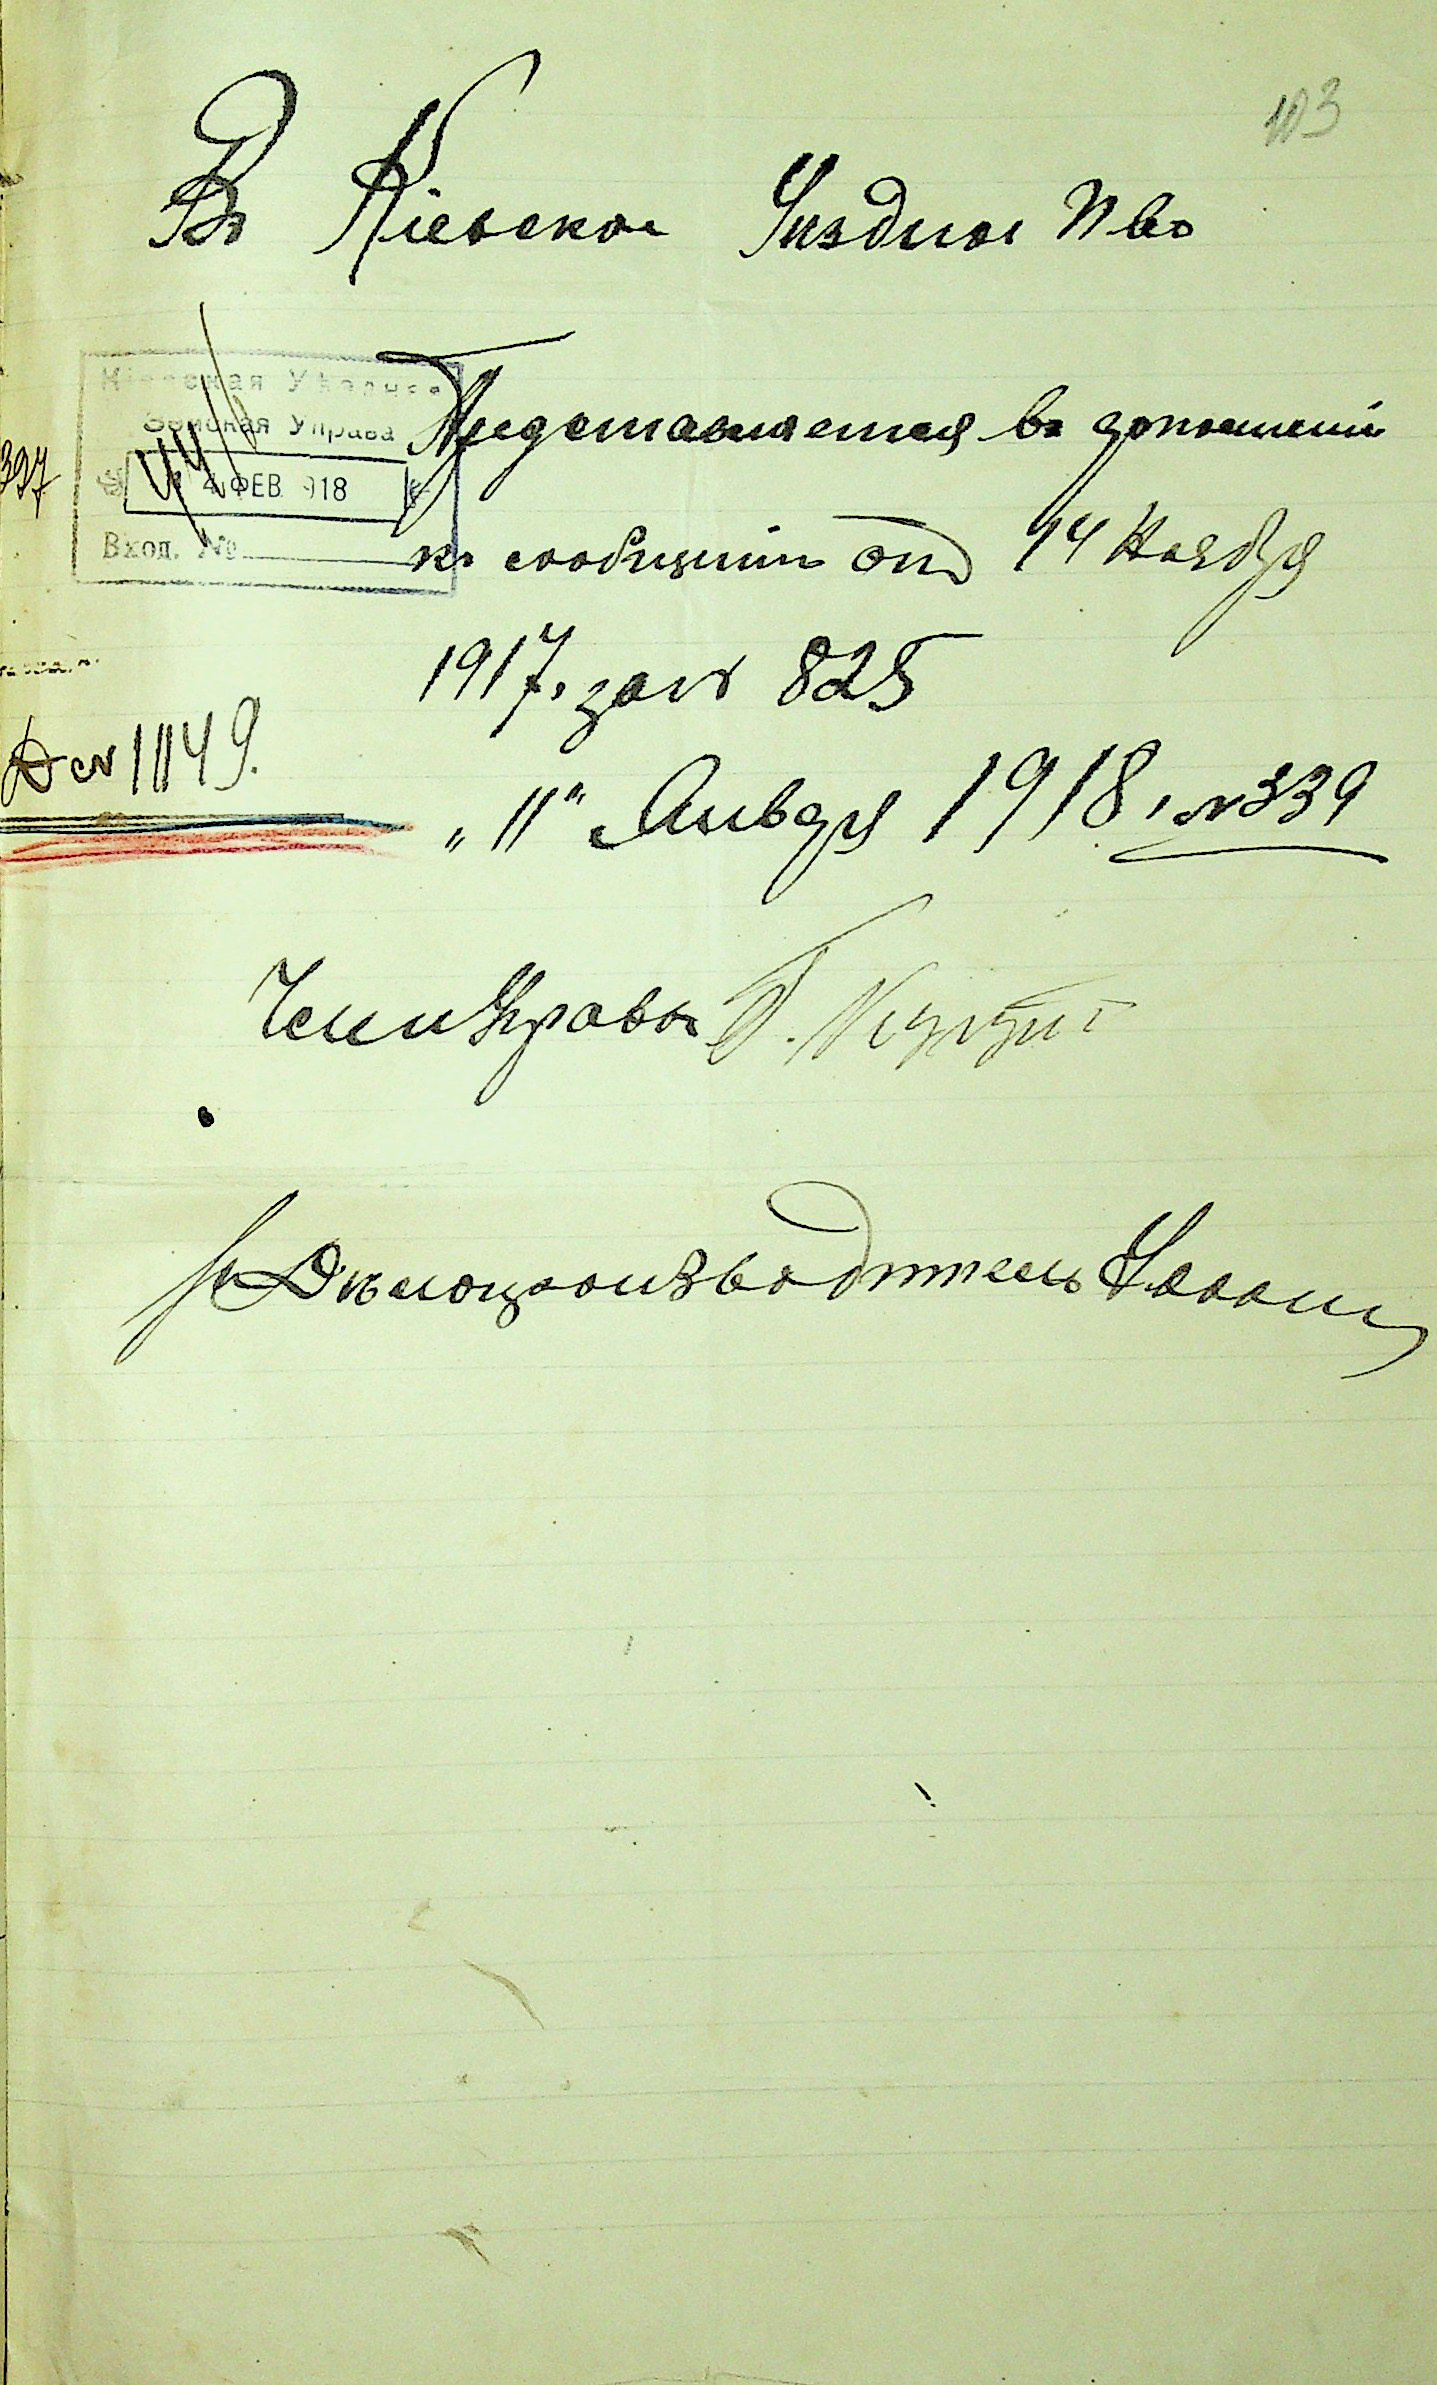 103
Въ Кіевское Уѣздное П-во
Кіевская Уѣздная
Земская Управа
4 ФЕВ. 918
Вход. №
397
Представляется въ дополненіи
къ сообщенію отъ 14 Ноября
1917, за № 825
Д № 1149.
„11" Января 1918, № 339
Член Управы
Дѣлопроизводитель